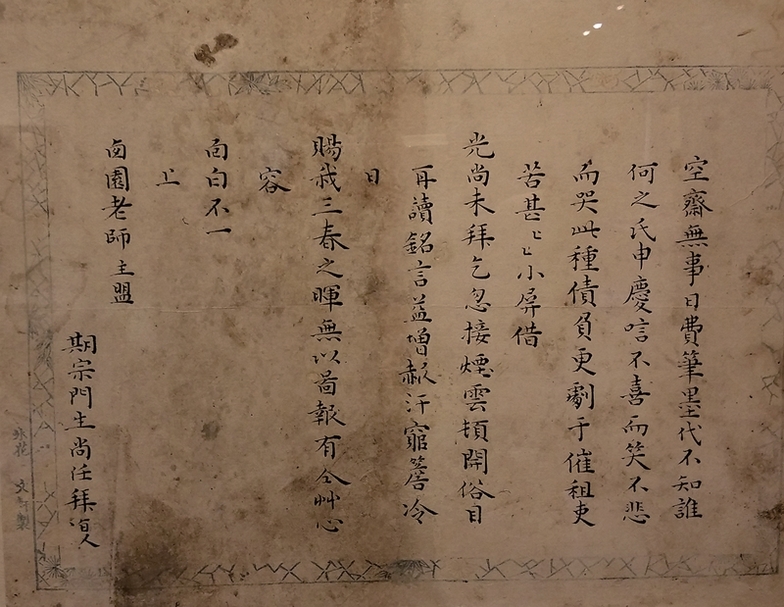 空齋無事日費筆墨代不知誰
何之氏申慶唁不喜而笑不悲
而哭此種債負更劇于催租吏
苦甚〻〻小屏借
光尚未拜乞忽接煙雲頓開俗目
再讀銘言益增赧汗寵
日
賜我三春之暉無以啚報有仝艸心
容
面白不一
上
鹵園老師主盟
期宗門生尚任拜